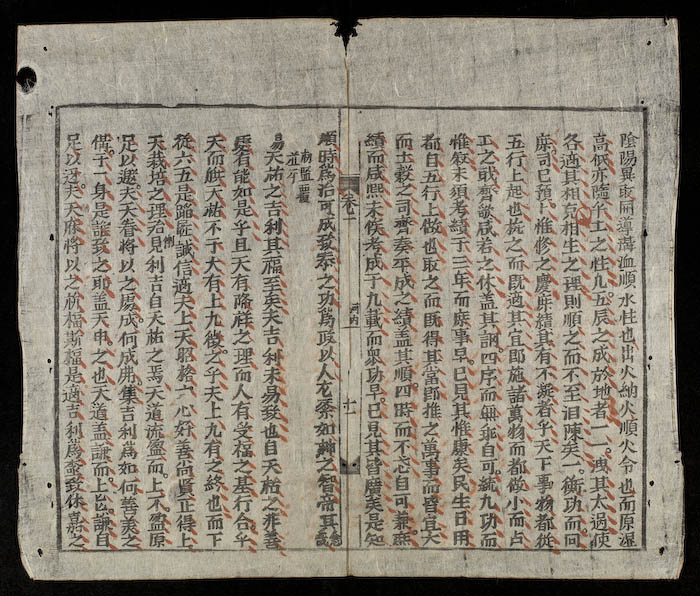 陰陽異取開導滯洫順水性也出火納火順火令也而原濕
高低亦隨乎土之性凡五辰之成於地者一一洩其太過使
各適其相克相生之理則順之而不至汨陳矣一衡功而向
庶司已預惟修之慶庶績其有不凝者乎天下事物都從
五行上起也撫之而既適其宜即施諸萬物而都做小而占
工之咸若之休盖其訓四序而無乖自可統九功而
惟叙未須考績于三年而庶事早已見其惟康矣民生日用
都自五行上做也取之而既得其當即推之萬事而皆宜大
而土穀之司齊奏平成之績盖其順四時而不忒自可兼庶
績而咸熙未俟考成于九載而衆功早已見其皆廣矣是知
卷一
河内
十一
順時爲治可成致泰之功爲政以人如神之智帝其念哉
易天祐之吉利其福至矣夫吉利未易致也自天祐之非善
履有能如是乎且天有隆祥之理而人有受福之基行合乎
天而天祐不于大有上九徵之乎夫上九有之終也而下
從六五是蹈誠信適天上天昭格心好善尚賢正得上
天栽培之理見利吉自天祐之焉天道流盈而上不盈原
足以邀天天眷將以之易成何成弗集吉利爲如何善羙之
備于一身是誰致之耶盖天申之也天道盖謙而上以謙自
足以迓天天府將以之祈福斯福是適吉利爲彙致休嘉之